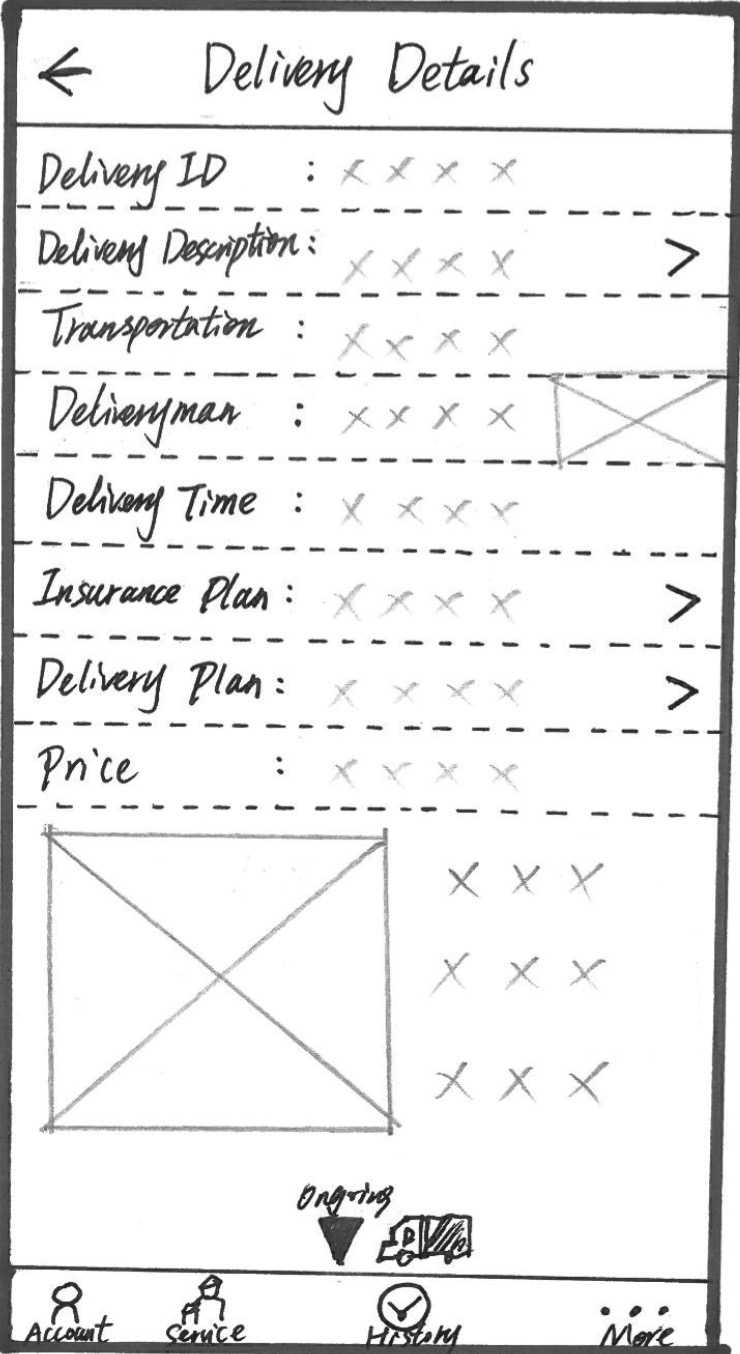 Delivery Details
Delivery ID : x x x x
Delivery Description: x x x x >
Transportation : x x x x
Deliveryman : x x x x
Delivery Time : x x x x
Insurance Plan : x x x x >
Delivery Plan : x x x x >
Price : x x x x
x x x
x x x
x x x
Ongoing
D
Account Service History More